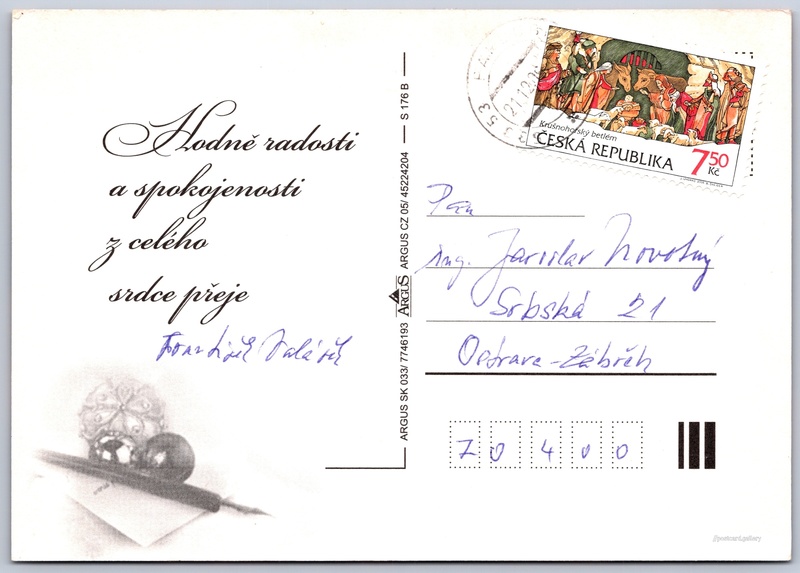 Hodně radosti
a spokojenosti
z celého
srdce přeje
František
S 176 B
ARGUS CZ 05/ 45224204
ARGUS
ARGUS SK 033/ 7746193
21.12.
Krušnohorský betlém
ČESKÁ REPUBLIKA
7 50 Kč
Pan
ing. Jaroslav Novotný
Srbská 21
Ostrava-Zábřeh
70400
postcard.gallery